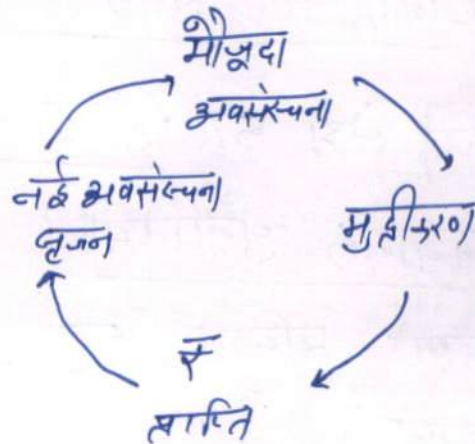 मौजूदा
अवसंरचना
मुद्रीकरण
₹
प्राप्ति
नई अवसंरचना
सृजन